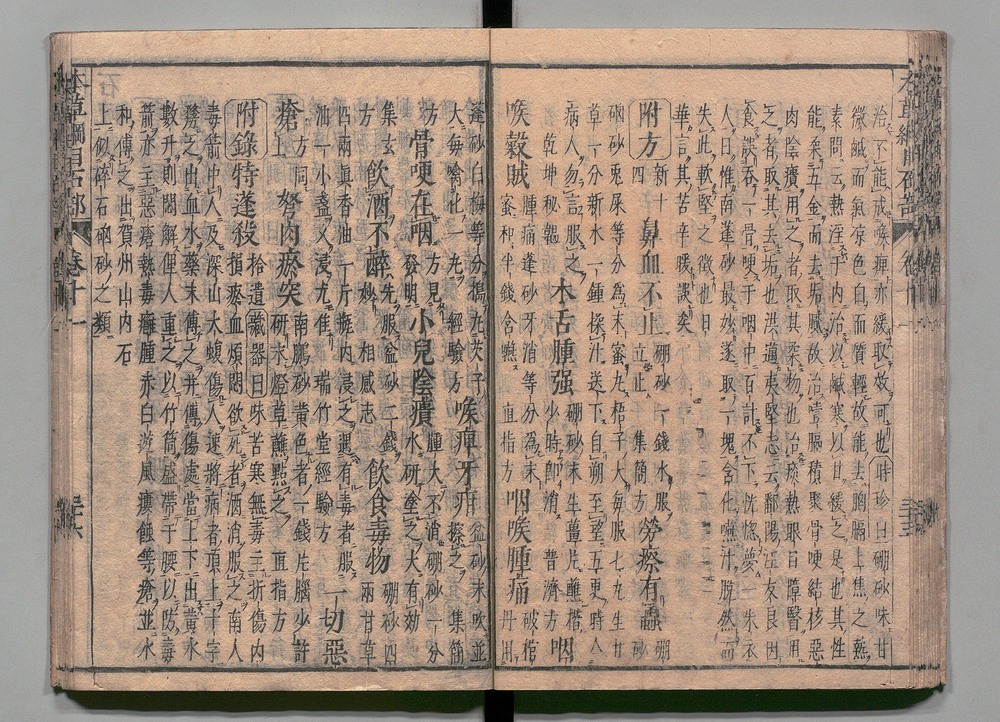 治不能戒喉痺亦緩取效可也時珍曰硼砂味甘
微鹹而氣凉色白而質輕故能去胸膈上焦之熱
素問云熱淫于内治以鹹寒以甘緩之是也其性
能柔五金而去垢膩故治噎膈積聚骨哽結核惡
肉陰㿉用之者取其柔物也治痰熱眼目障瞖用
之者取其去垢也洪邁夷堅志云鄱陽汪友良因
食誤吞一骨哽于咽中百計不下恍惚夢一朱衣
人曰惟南蓬砂最妙遂取一塊含化嚥汁脱然而
失此軟堅之徵也日
華言其苦辛暖誤矣
附方 新十四 鼻血不止 硼砂一錢水服立止 集簡方 勞瘵有蟲 硼砂
硇砂兎屎等分爲末蜜丸梧子大每服七丸生甘
草一分新水一鍾揉汁送下自朔至望五更時令
病人勿言服之 乾坤秘韞 木舌腫强 硼砂末生薑片蘸揩少時即消 普濟方 咽
喉穀賊 腫痛蓬砂牙消等分爲末蜜和半錢含嚥 直指方 咽喉腫痛 破棺丹用
蓬砂白梅等分搗丸芡子大每噙化一丸 經驗方 喉痺牙疳 盆砂末吹並擦之 集簡
方 骨哽在咽 方見發明 小兒陰㿉 腫大不消硼砂一分水研塗之大有効
集玄方 飲酒不醉 先服盆砂二錢妙 相感志 飲食毒物 硼砂四兩甘草
四兩眞香油一斤瓶内浸之遇有毒者服油一小盞久浸尤佳 瑞竹堂經驗方 一切惡
瘡 上方同 弩肉瘀突 南鵬砂黄色者一錢片腦少許研末燈草蘸點之 直指方
附錄特蓬殺 拾遺 藏器曰味苦寒無毒主折傷内損瘀血煩悶欲死者酒消服之南人
毒箭中人及深山大蝮傷人速將病者頂上十字
剺之出血水藥末傅之并傅傷處當上下出黄水
數升則悶解俚人重之以竹筒盛帶于腰以防毒
箭亦主惡瘡熱毒癰腫赤白遊風瘻蝕等瘡並水
和傅之出賀州山内石
上似碎石硇砂之類